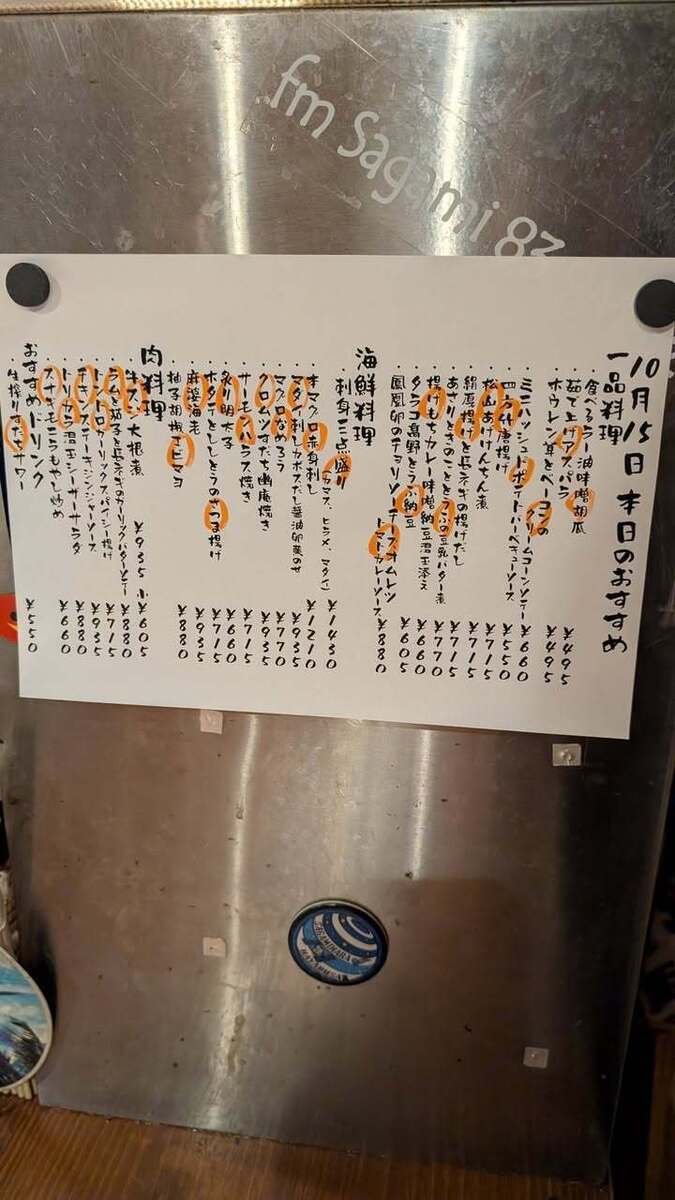 fm Sagami 83
10月15日 本日のおすすめ
一品料理
・食べるラー油味噌胡瓜 ¥495
・茹で上げアスパラ ¥495
・ホウレン草とベーコンのクリームコーンソテー ¥660
・ミニハッシュドポテトバーベキューソース ¥550
・四方竹唐揚げ ¥715
・松山あげけんちん煮 ¥715
・絹厚揚げと長ネギの揚げだし ¥715
・あさりときのこととうふの豆乳バター煮 ¥770
・揚げもちカレー味噌納豆温玉添え ¥660
・タラコ高野とうふ納豆 ¥605
・鳳凰卵のチョリソーチーズオムレツ
トマトカレーソース ¥880
海鮮料理
・刺身三点盛り(カマス、ヒラメ、マダイ) ¥1430
・本マグロ赤身刺し ¥1210
・マダイ刺しカボスだし醤油卵黄のせ ¥935
・マグロなめろう ¥770
・クロムツすだち幽庵焼き ¥935
・サーモンハラス焼き ¥715
・炙り明太子 ¥660
・ホタテとししとうのさつま揚げ ¥715
・麻婆海老 ¥935
・柚子胡椒エビマヨ ¥880
肉料理
・牛スジ大根煮 ¥935 小¥605
・ラムと茄子と長ネギのガーリックバターソテー ¥880
・トントロガーリックスパイシー揚げ ¥715
・チキンステーキジンジャーソース ¥935
・トリカラ温玉シーザーサラダ ¥880
・スナギモニラもやし炒め ¥660
おすすめドリンク
・生搾りすだちサワー ¥550
SAGAMIHARA